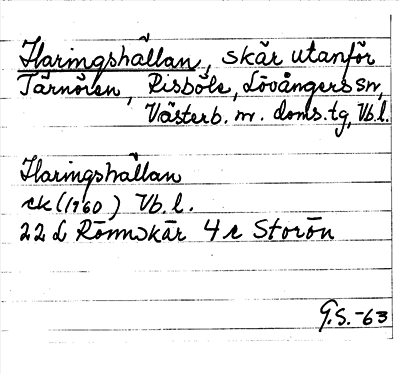 Haringshällan, skär utanför
Tärnören, Risböle, Lövångers sn,
Västerb. n. doms.tg, Vb.l.
Haringshällan
ek (1960) Vb.l.
22 L Rönnskär 4 c Storön
G.S.-63